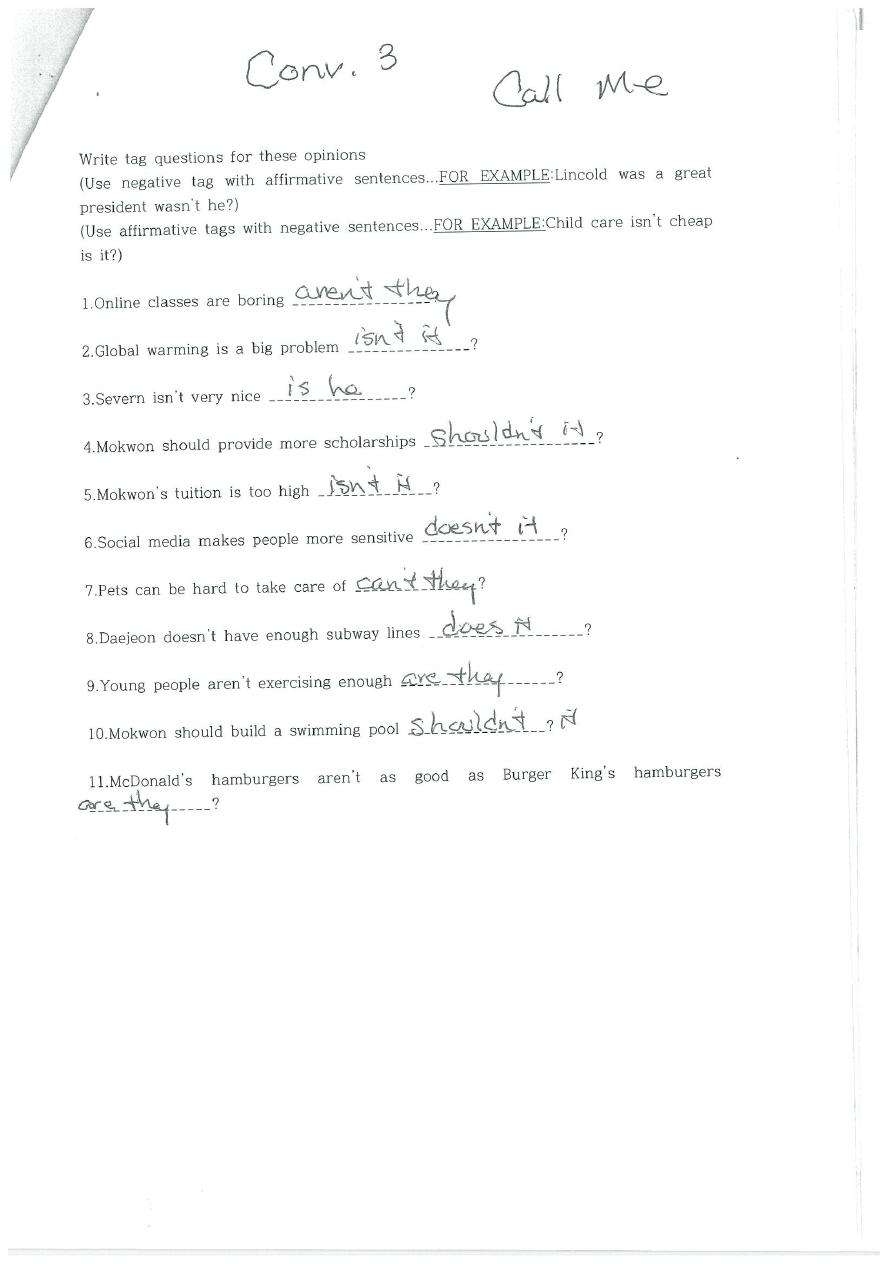 Conv. 3
Call Me
Write tag questions for these opinions
(Use negative tag with affirmative sentences...FOR EXAMPLE:Lincold was a great
president wasn't he?)
(Use affirmative tags with negative sentences...FOR EXAMPLE:Child care isn't cheap
is it?)
1.Online classes are boring aren't they
2.Global warming is a big problem isn't it ?
3.Severn isn't very nice is he ?
4.Mokwon should provide more scholarships shouldn't it ?
5.Mokwon's tuition is too high isn't it ?
6.Social media makes people more sensitive doesn't it ?
7.Pets can be hard to take care of can't they?
8.Daejeon doesn't have enough subway lines does it ?
9.Young people aren't exercising enough are they ?
10.Mokwon should build a swimming pool shouldn't ? it
11.McDonald's hamburgers aren't as good as Burger King's hamburgers
are they ?